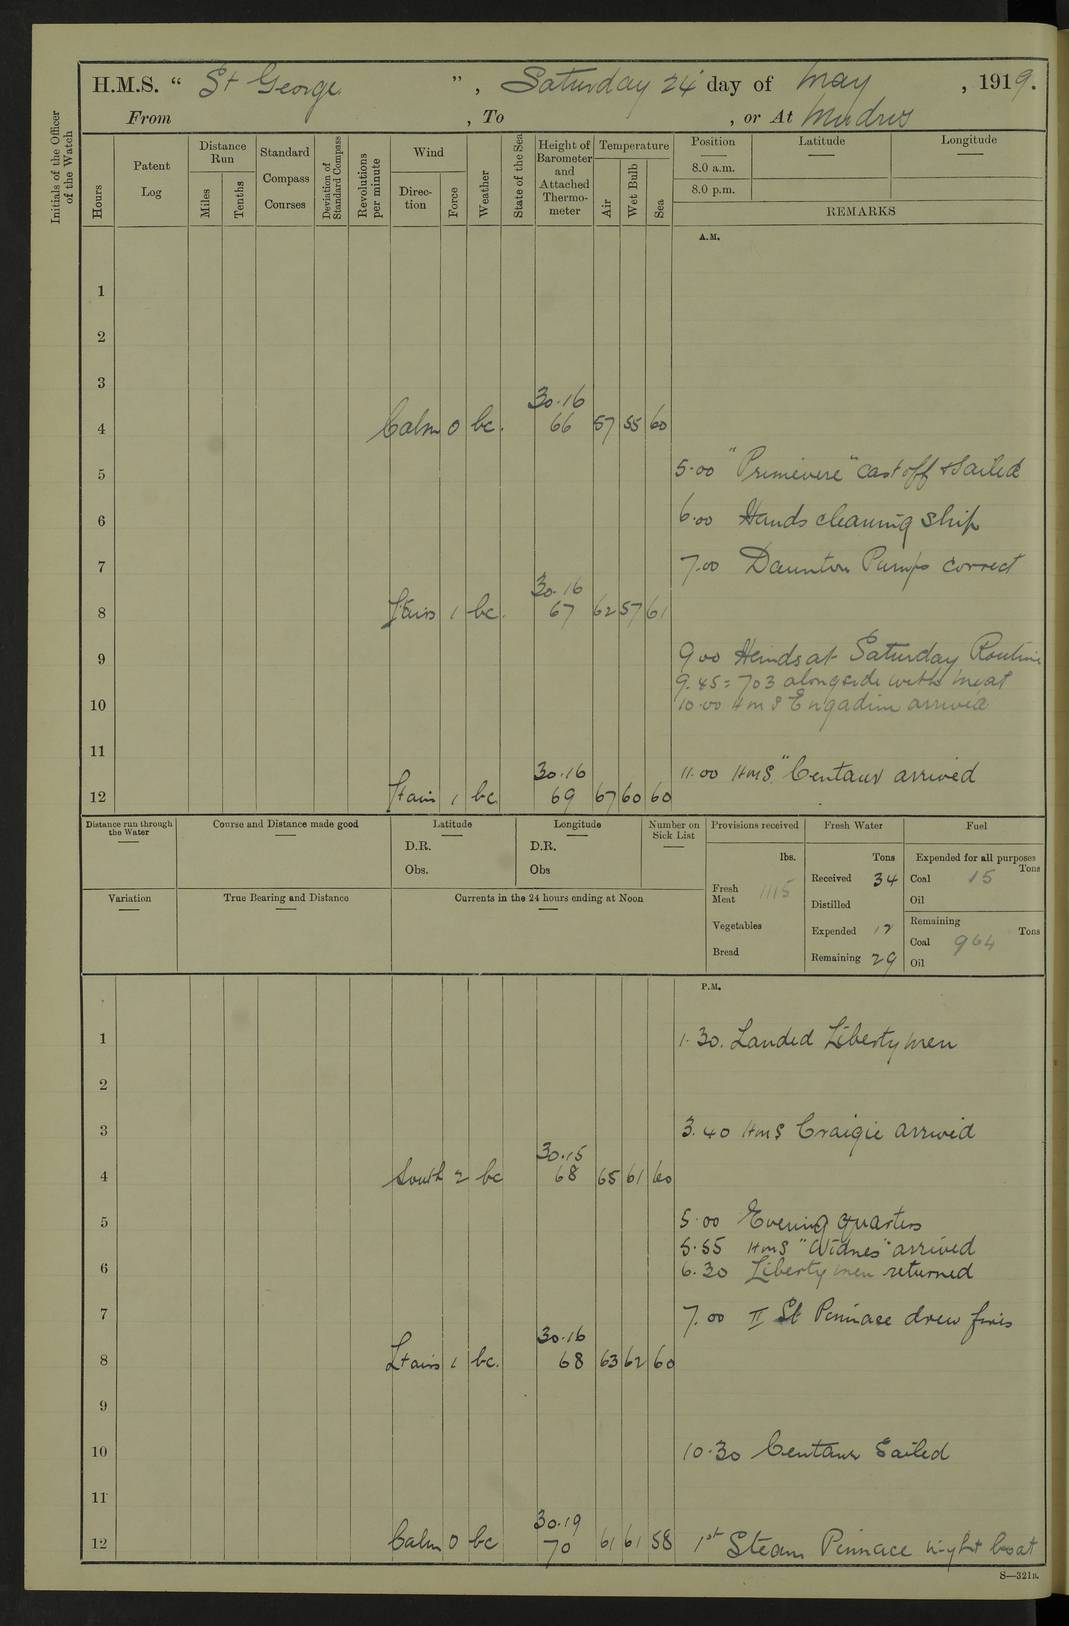 H.M.S. “ St George ”, Saturday 24 day of May, 1919.
From , To , or At Mudros
Initials of the Officer of the Watch
Hours
Patent Log
Distance Run
Miles
Tenths
Standard Compass Courses
Deviation of Standard Compass
Revolutions per minute
Wind
Direction
Force
Weather
State of the Sea
Height of Barometer and Attached Thermometer
Temperature
Air
Wet Bulb
Sea
Position
8.0 a.m.
8.0 p.m.
Latitude
Longitude
REMARKS
A.M.
1
2
3
30.16
4 Calm 0 bc. 66 57 55 60
5 5.00 "Primevere" cast off & Sailed
6 6.00 Hands cleaning ship
7 7.00 Daunton Pumps correct
30.16
8 Ltairs 1 bc. 67 62 57 61
9 9.00 Hands at Saturday Routine
9.45 = 703 alongside with meat
10 10.00 HMS Engadine arrived
11
30.16 11.00 HMS "Centaur arrived
12 Ltairs 1 bc 69 67 60 60
Distance run through the Water
Course and Distance made good
Latitude
D.R.
Obs.
Longitude
D.R.
Obs
Number on Sick List
Provisions received
lbs.
Fresh Meat 1115
Vegetables
Bread
Fresh Water
Tons
Received 34
Distilled
Expended 17
Remaining 29
Fuel
Expended for all purposes
Tons
Coal 15
Oil
Remaining
Tons
Coal 964
Oil
Variation
True Bearing and Distance
Currents in the 24 hours ending at Noon
P.M.
1 1.30. Landed Liberty men
2
3 3.40 HMS Craigie arrived
30.15
4 South 2 bc 68 65 61 60
5 5.00 Evening quarters
5.55 HMS "Widnes" arrived
6 6.30 Liberty men returned
7 7.00 II St Pinnace drew fires
30.16
8 Ltairs 1 bc. 68 63 62 60
9
10 10.30 Centaur Sailed
11
30.19
12 Calm 0 bc 70 61 61 58 1st Steam Pinnace night boat
S—321B.